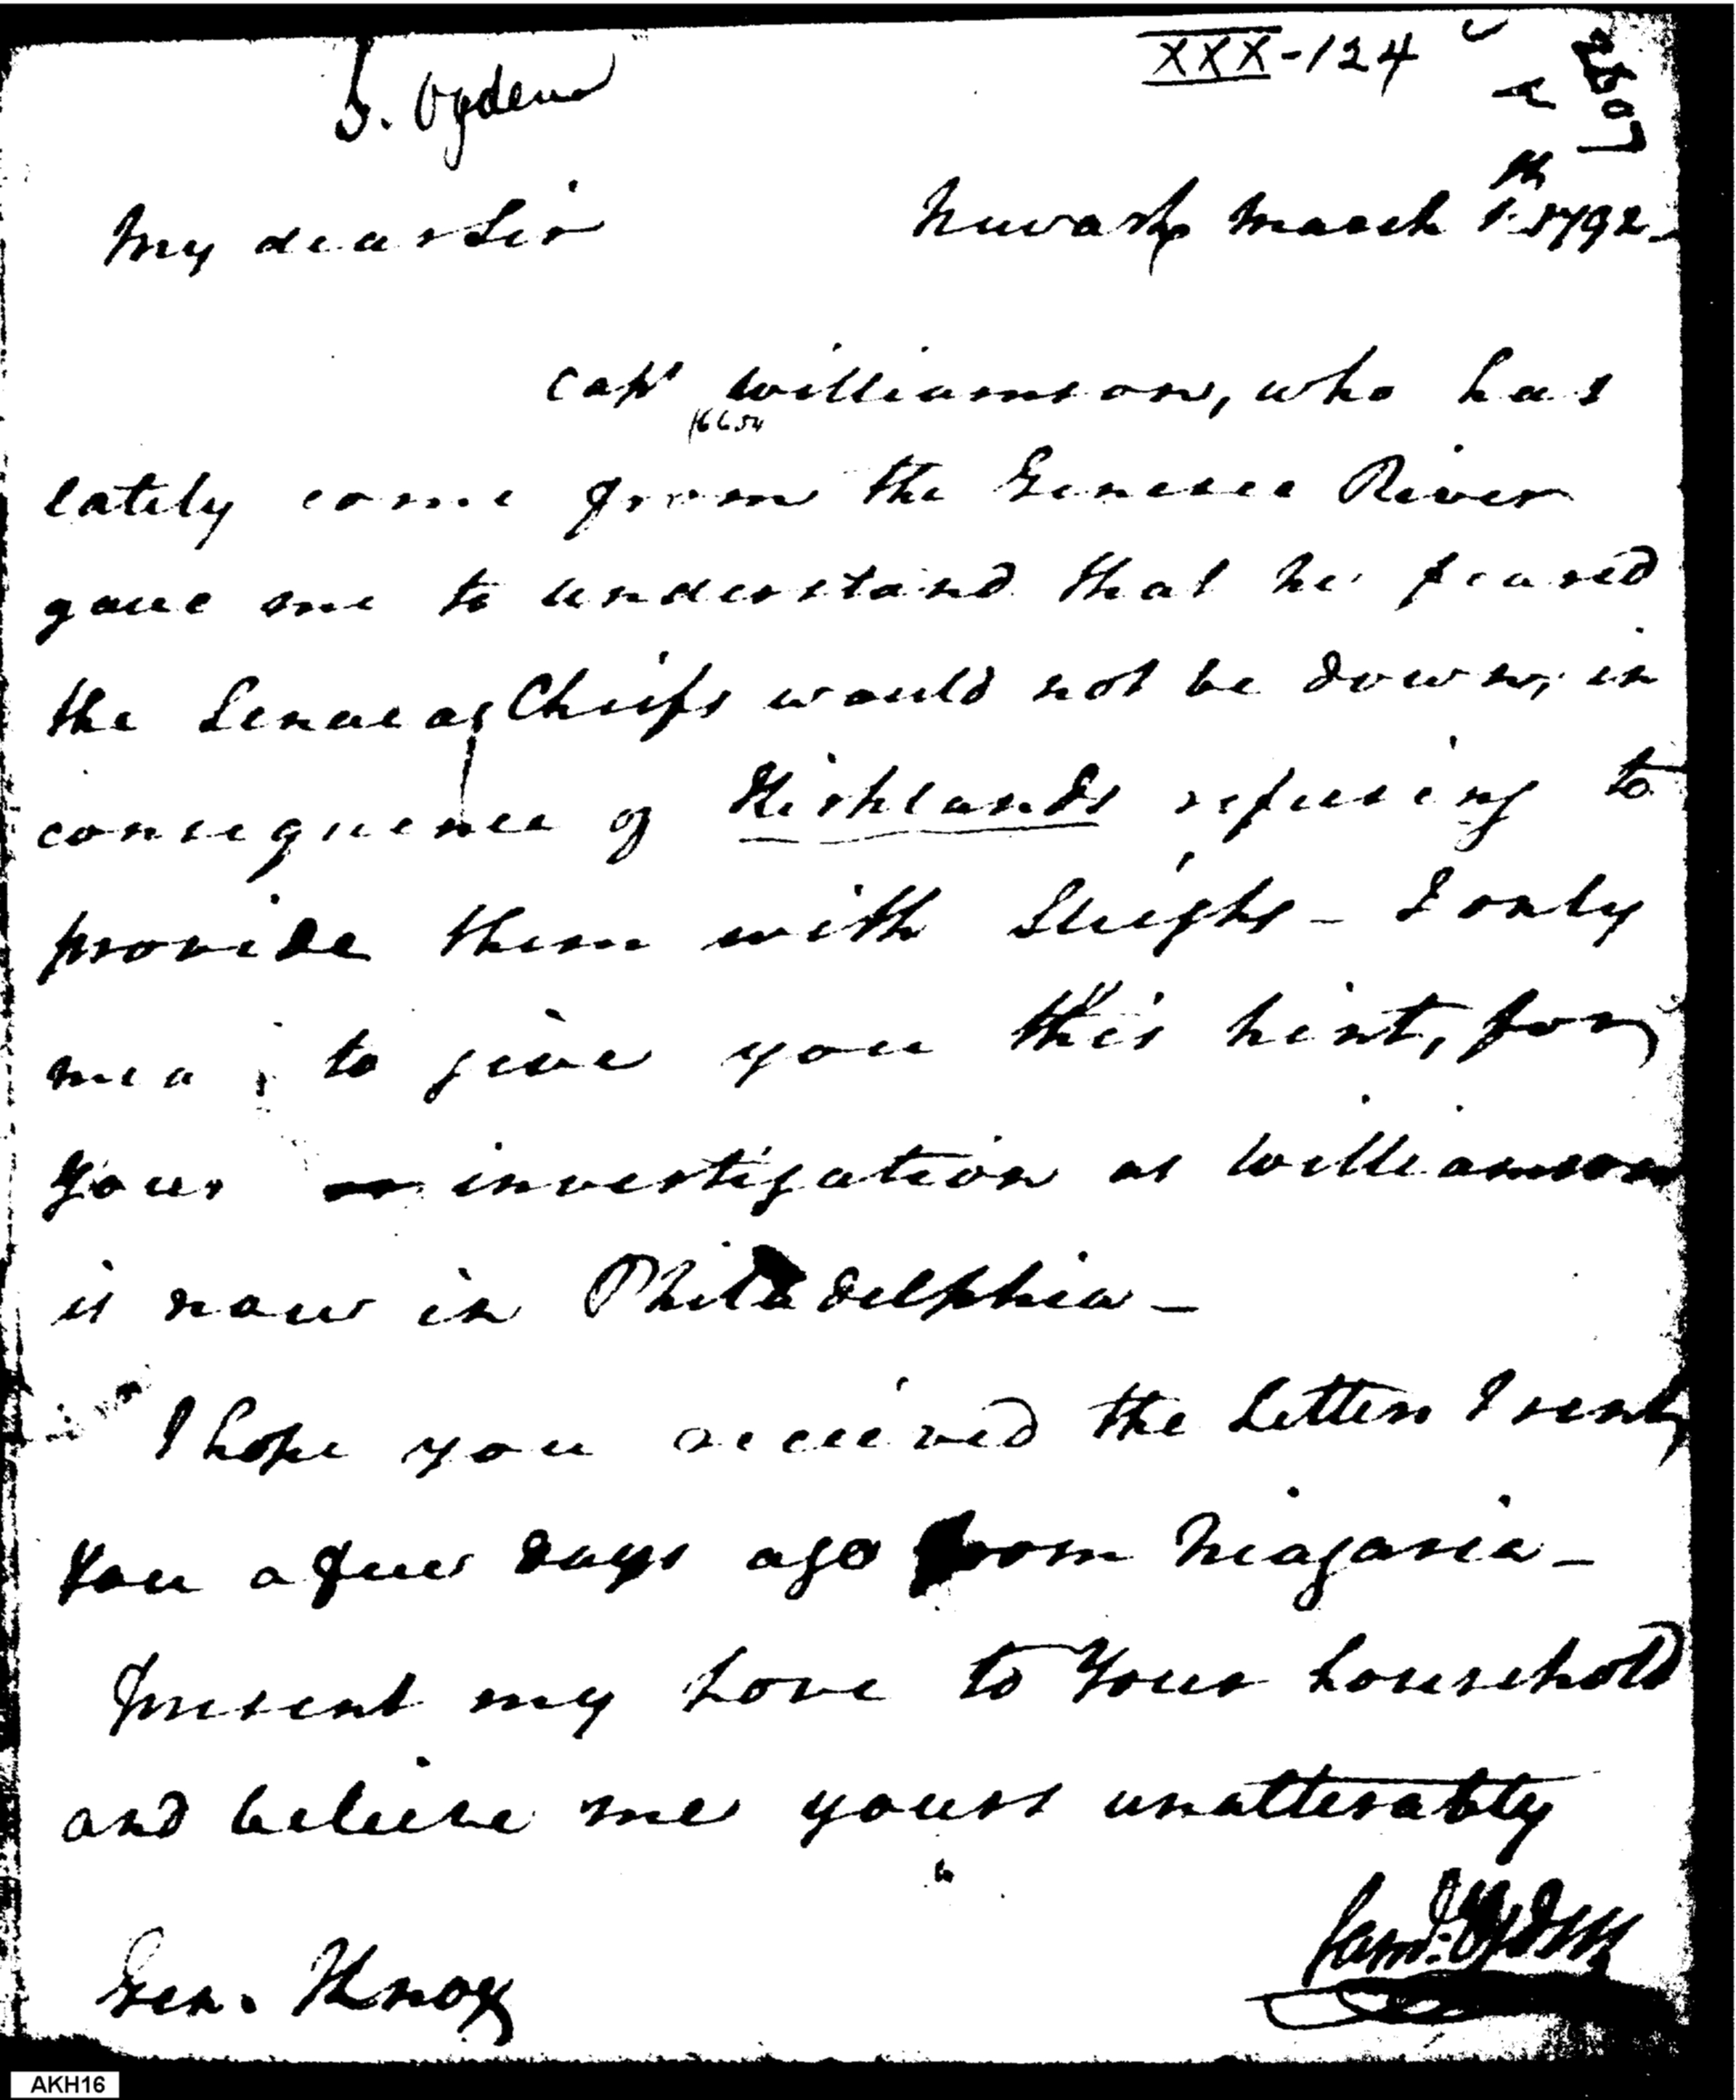 S. Ogden
XXX-124
My dear Sir
Newark March 1792-
Capt Williamson, who has
16654
lately come from the Genesee River
gave me to understand that he feared
the Senecas Chiefs would not be down, in
consequence of Kirklands refusing to
provide them with Sleighs - I only
mea to give you this hint, for
your investigation as Williamson
is now in Philadelphia -
I hope you received the Letter I sent
you a few days ago from Niagaria -
Present my Love to Your household
and believe me yours unalterably
Saml. Ogden
Gen. Knox
AKH16